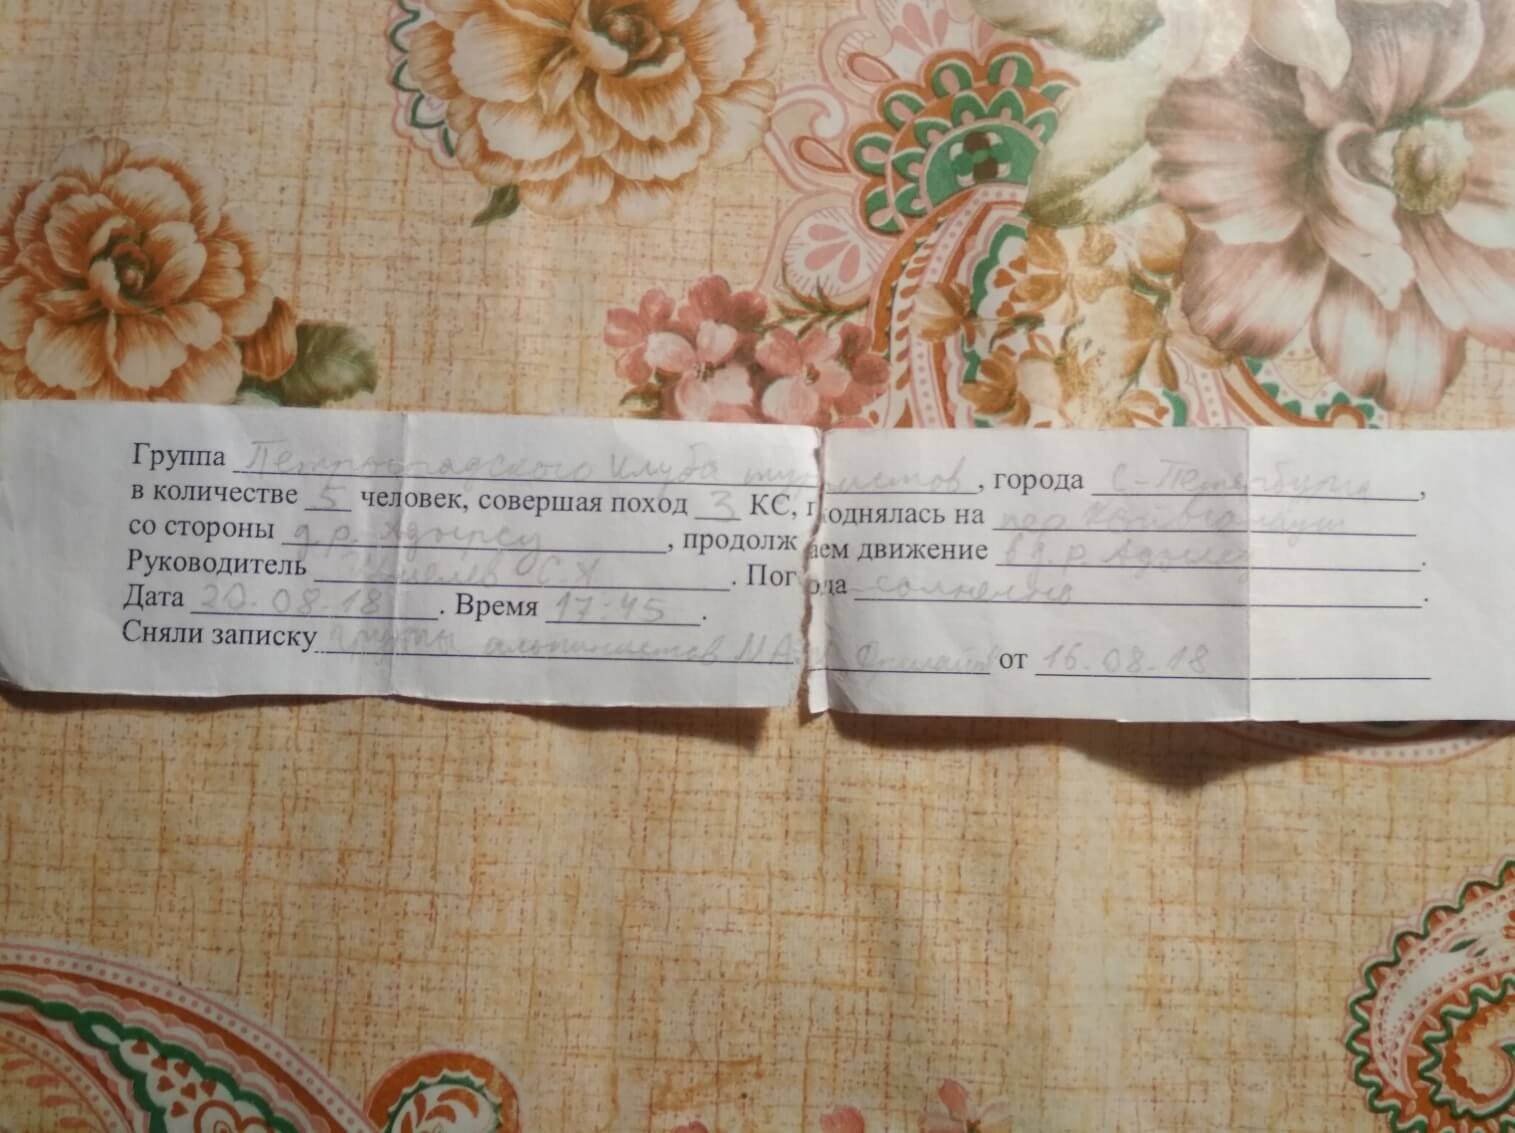 Группа Петроградского клуба туристов, города С-Петербург,
в количестве 5 человек, совершая поход 3 КС, поднялась на пер
со стороны д.р. Адырсу, продолжаем движение в д.р. Адырсу.
Руководитель С.А. Погода солнечно.
Дата 20.08.18. Время 17:45.
Сняли записку группы альпинистов от 16.08.18